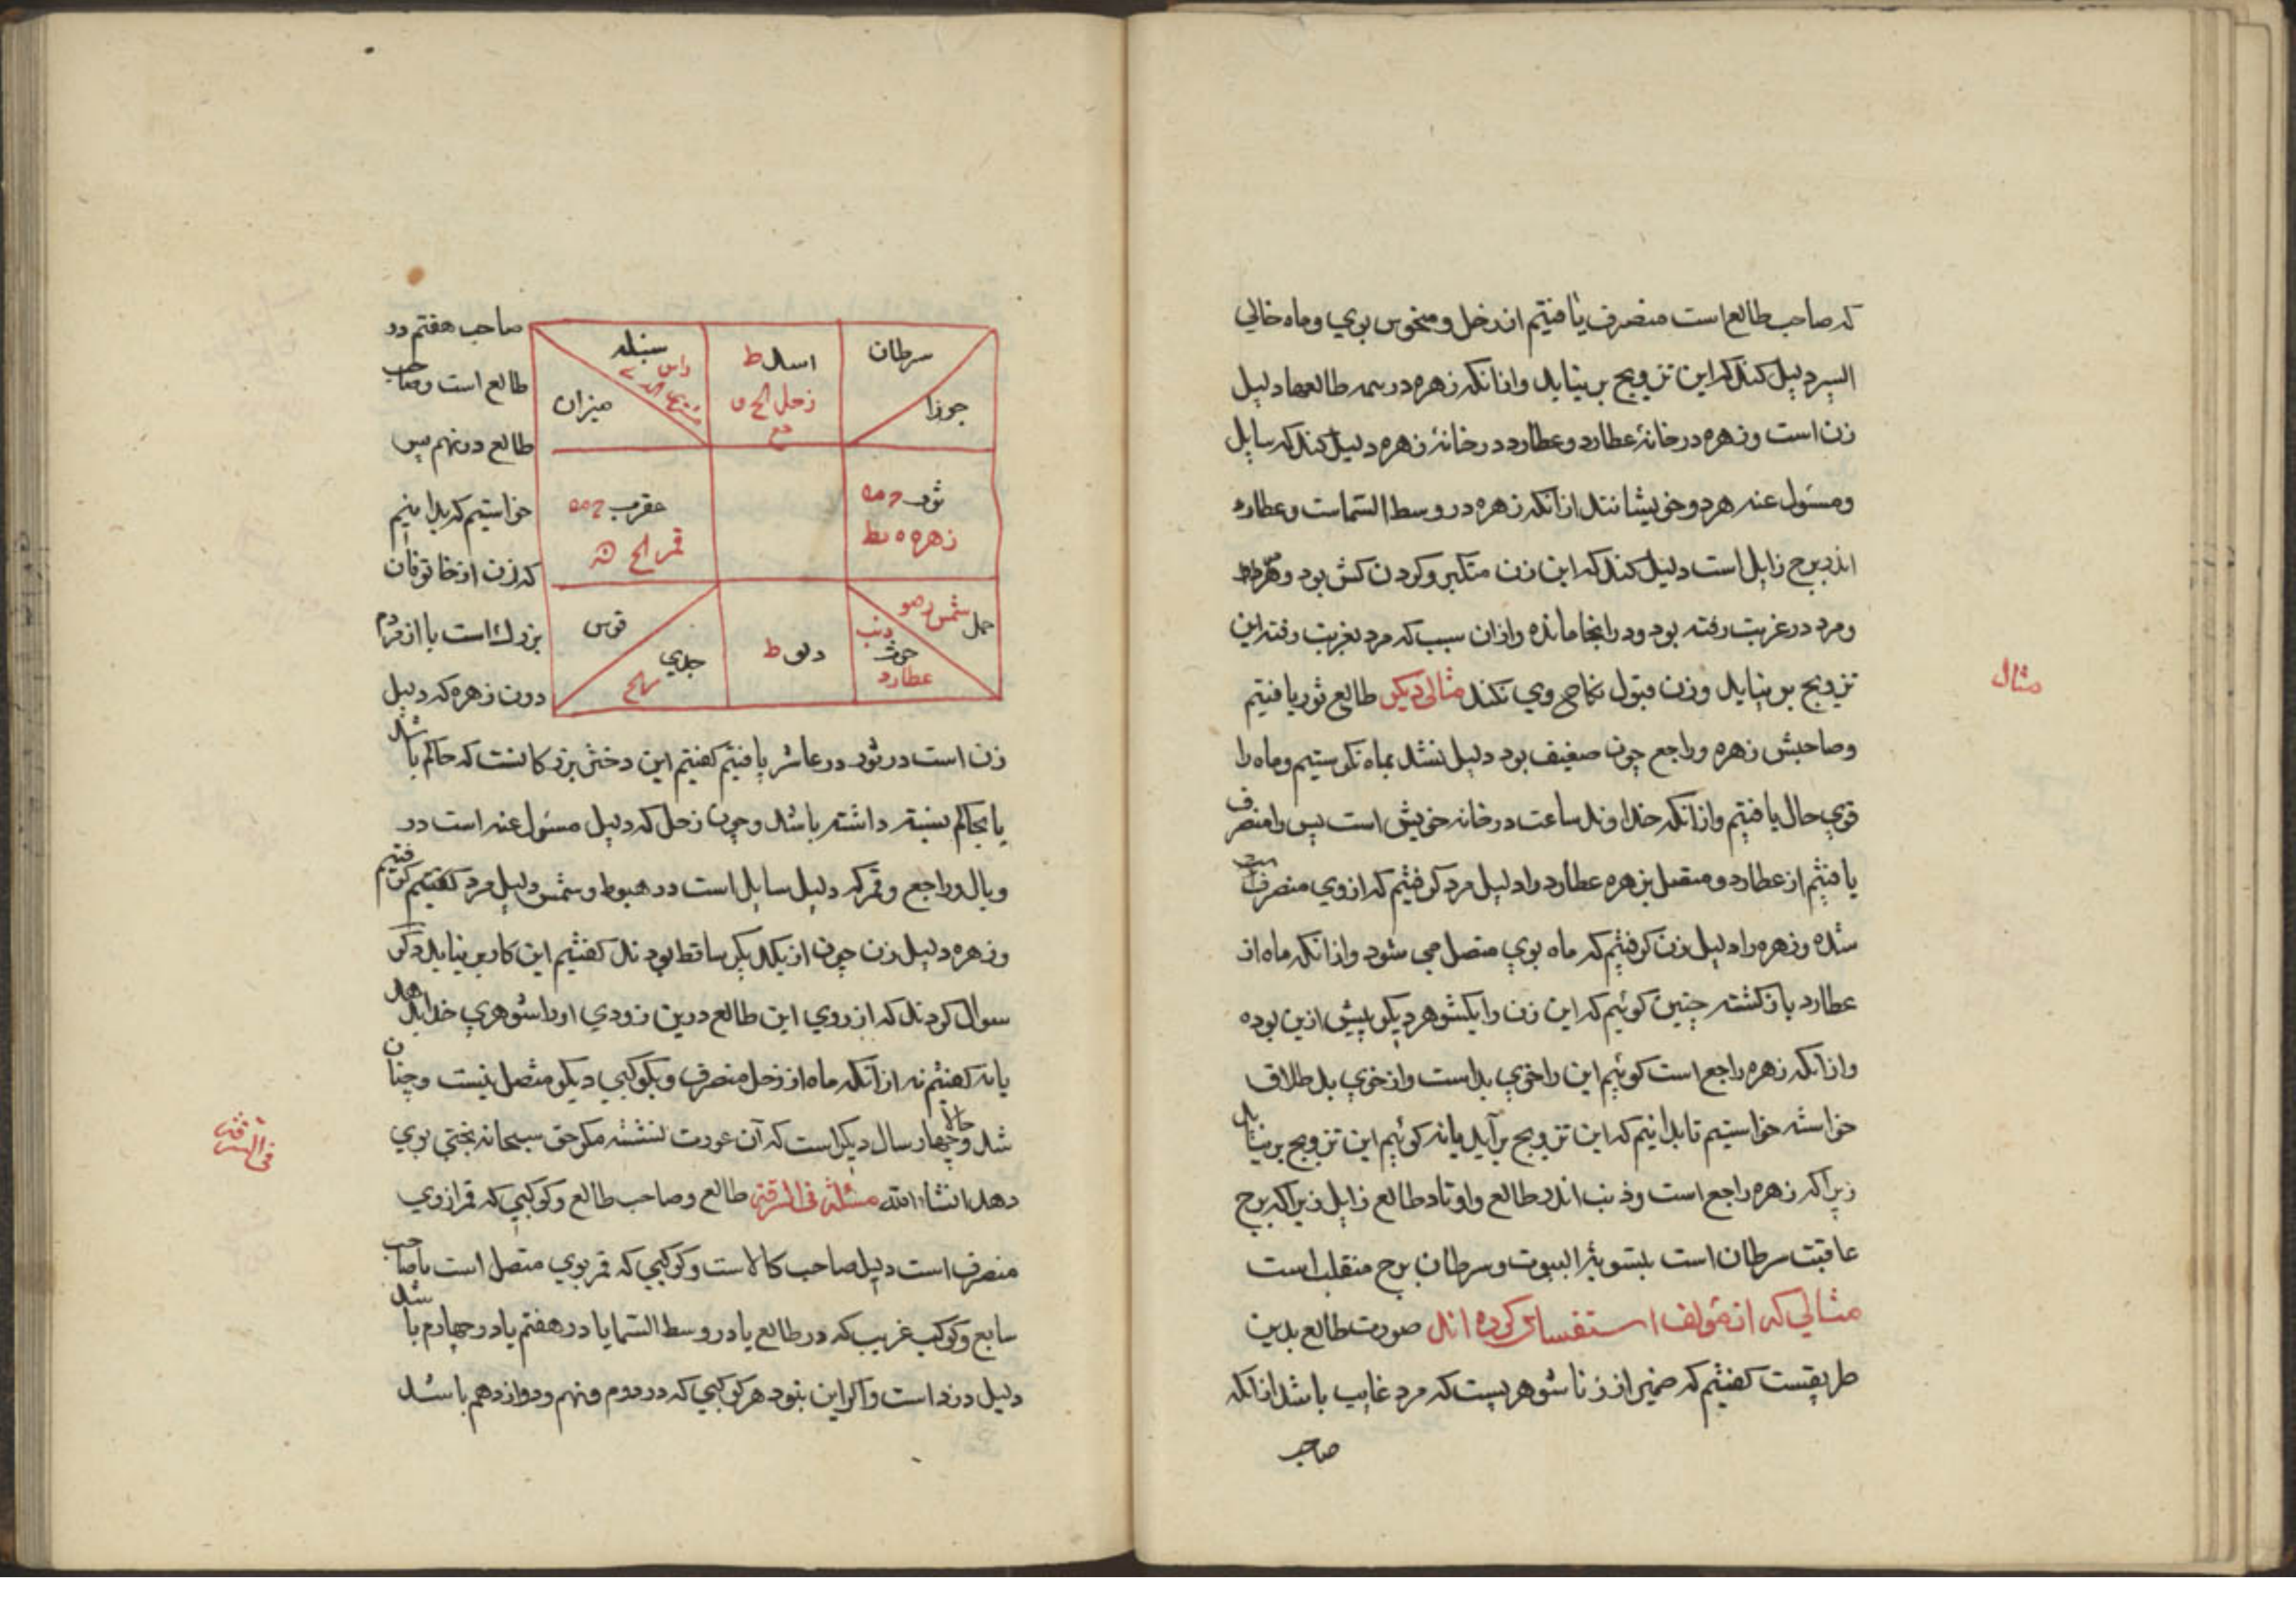 که صاحب طالع است منصرف یافتیم از زحل و منحوس بوي و ماه خالي
السیر دلیل کند که این تزویج بر نیاید و از انکه زهره در همه طالعها دلیل
زن است و زهره در خانهٔ عطارد و عطارد در خانهٔ زهره دلیل کند که سایل
و مسئول عنه هر دو خویشانند از انکه زهره در وسط السّماست و عطارد
اندر برج زایل است دلیل کند که این زن متکبر و کردن کش بود
و مرد در غربت رفته بود و در انجا مانده و ازان سبب که مرد بغربت رفته این
تزویج بر نیاید و زن قبول نکاح وي نکند مثالی دیکر طالع ثور یافتیم
مثال
و صاحبش زهره و راجع چون ضعیف بود دلیل نشد بماه نکرستیم و ماه را
قوي حال یافتیم و از انکه خداوند ساعت در خانه خویش است پس را منصرف
یافتیم از عطارد و متصل بزهره عطارد را دلیل مرد کرفتیم که از وي منصرف
شده و زهره را دلیل زن کرفتیم که ماه بوي متصل مي شود و از انکه ماه از
عطارد باز کشته چنین کوئیم که این زن را یکشوهر دیکر پیش ازین بوده
و از انکه زهره راجع است کوئیم این را خوي بد است و از خوي بد طلاق
خواسته خواستیم تا بدانیم که این تزویج بر آید یا نه کوئیم این تزویج بر نیاید
زیرا که زهره راجع است و ذنب اندر طالع و اوتاد طالع زایل زیرا که برج
عاقبت سرطان است بتسویة البیوت و سرطان برج منقلب است
مثالي که از مؤلف استفسار کرده اند صورت طالع بدین
طریقست کفتیم که ضمیر از زناشوهریست که مرد غایب باشد از انکه
صاحب
صاحب هفتم در
طالع است و صاحب
طالع در نهم پس
خواستیم که بدانیم
که زن از خاتونان
بزرك است یا از مردم
دون زهره که دلیل
سرطان
جوزا
اسد ط
زحل
سنبله
راس
میزان
ثور
زهره
عقرب
قمر
حمل
شمس
ذنب
حوت
عطارد
دلو ط
جدي
قوس
زن است در ثور در عاشر یافتیم کفتیم این دختر بزرکانست که حاکم باشد
یا بحاکم نسبت داشته باشد و چون زحل که دلیل مسئول عنه است در
وبال و راجع و قمر که دلیل سایل است در هبوط و شمس دلیل مرد کرفتیم
و زهره دلیل زن چون از یکدیکر ساقط بودند کفتیم این کار بر نیاید دکر
سوال کردند که از روي این طالع درین زودي او را شوهري خواهد
یا نه کفتیم نه از آنکه ماه از زحل منصرف و بکوکبي دیکر متصل نیست و چنان
شد و چهار سال دیکر است که آن عورت نشسته مکر حق سبحانه بختي بوي
دهد انشاء الله مسئلة في السرقة طالع و صاحب طالع و کوکبي که قمر از وي
في السرقة
منصرف است دلیل صاحب کالاست و کوکبي که قمر بوي متصل است یا صاحب
سابع و کوکب غریب که در طالع یا در وسط السّما یا در هفتم یا در چهارم باشد
دلیل دزد است و اکر این نبود هر کوکبي که در دوم و نهم و دوازدهم باشد